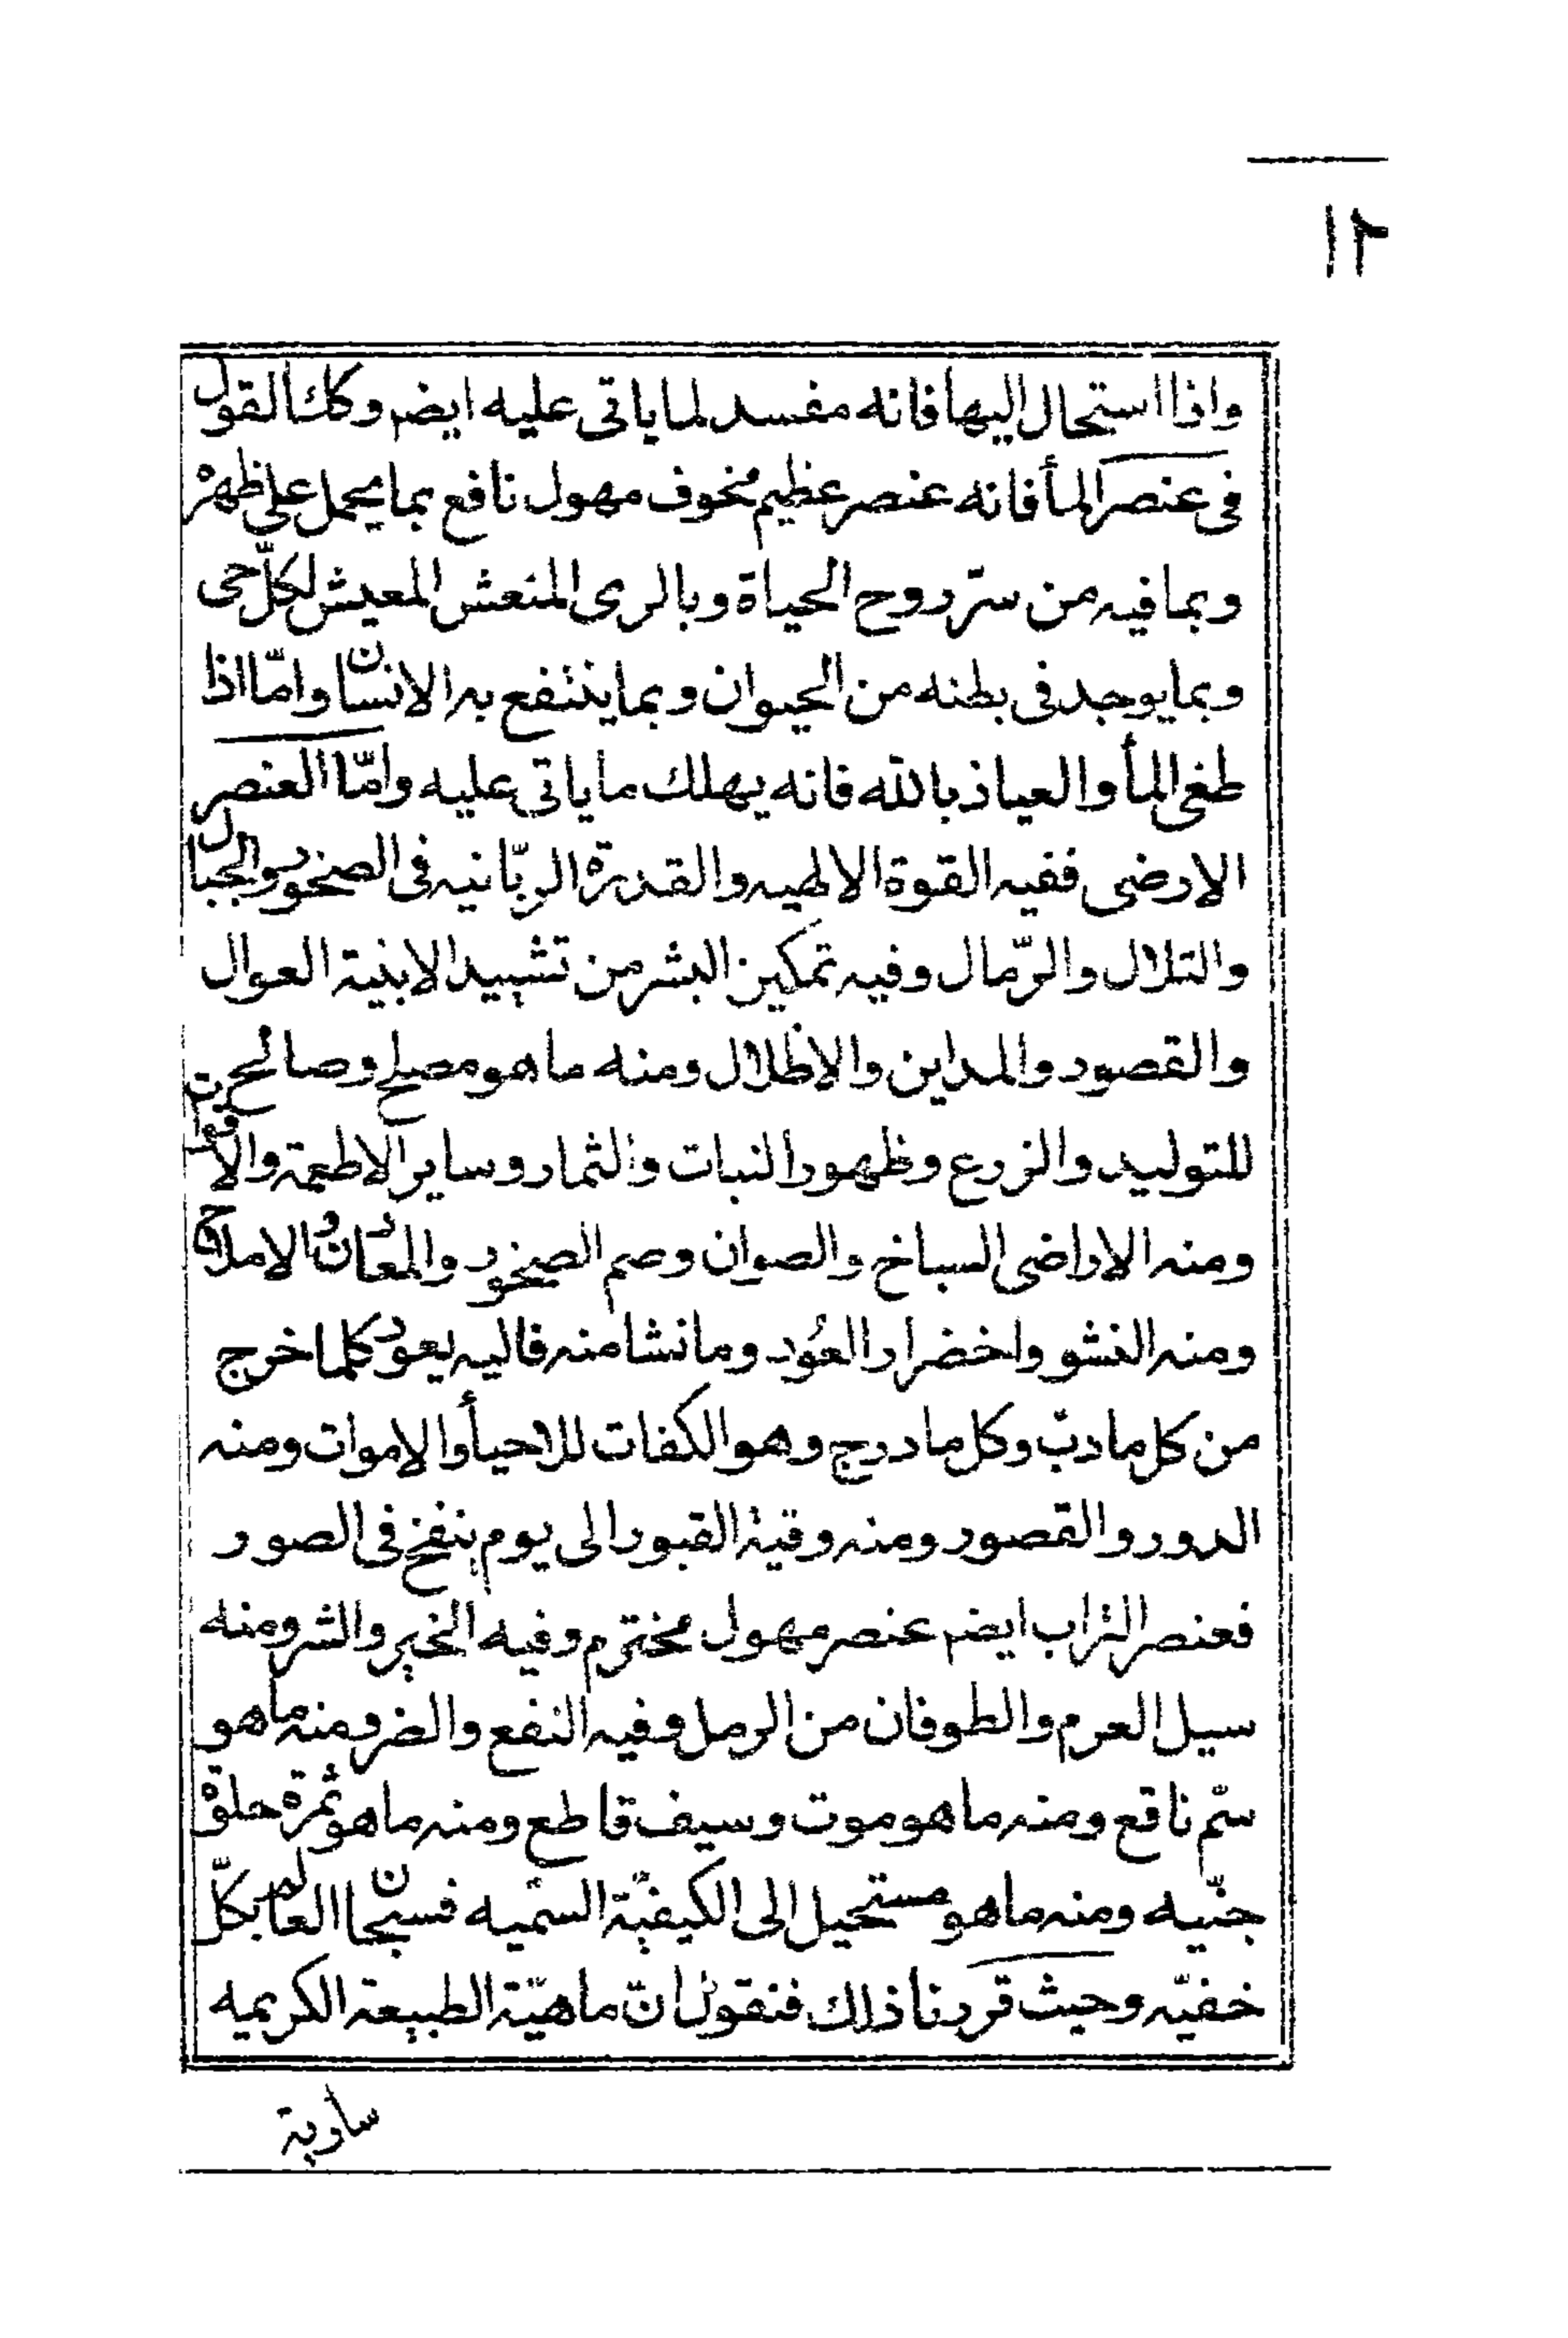 ١٢
واذا استحال اليها فانه مفسد لما ياتى عليه ايضم وكك القول
فى عنصر المأ فانه عنصر عظيم مخوف مهول نافع بما يحمل على ظهره
وبما فيه من سرّ روح الحياة وبالرى المنعش المعيش لكلّ حى
وبما يوجد فى بطنه من الحيوان وبما ينتفع به الانسان وامّا اذا
طغى المأ والعياذ بالله فانه يهلك ما ياتى عليه وامّا العنصر
الارضى ففيه القوة الالهيه والقدرة الربّانيه فى الصخور والجبال
والتلال والرّمال وفيه تمكين البشر من تشييد الابنية العوال
والقصور والمداين والاظلال ومنه ما هو مصلح وصالح
للتوليد والزرع وظهور النبات والثمار وساير الاطعمة والاقوات
ومنه الاراضى السباخ والصوان وصم الصيخود والمعادن والاملاح
ومنه النشو واخضرار العُود وما نشا منه فاليه يعود كلما خرج
من كل ما دبّ وكل ما درج وهو الكفات للاحيأ والاموات ومنه
الدور والقصور ومنه وقية القبور الى يوم ينفخ فى الصور
فعنصر التراب ايضم عنصر مهول محترم وفيه الخير والشر ومنه
سيل العرم والطوفان من الرمل وفيه النفع والضر ومنه ما هو
سّم ناقع ومنه ما هو موت وسيف قاطع ومنه ما هو ثمرة حلوة
جنّيه ومنه ما هو مستحيل الى الكيفيّة السمّيه فسبحان العالم بكلّ
خفيّه وحيث قررنا ذلك فنقول انّ ماهيّة الطبيعة الكريميه
سارية